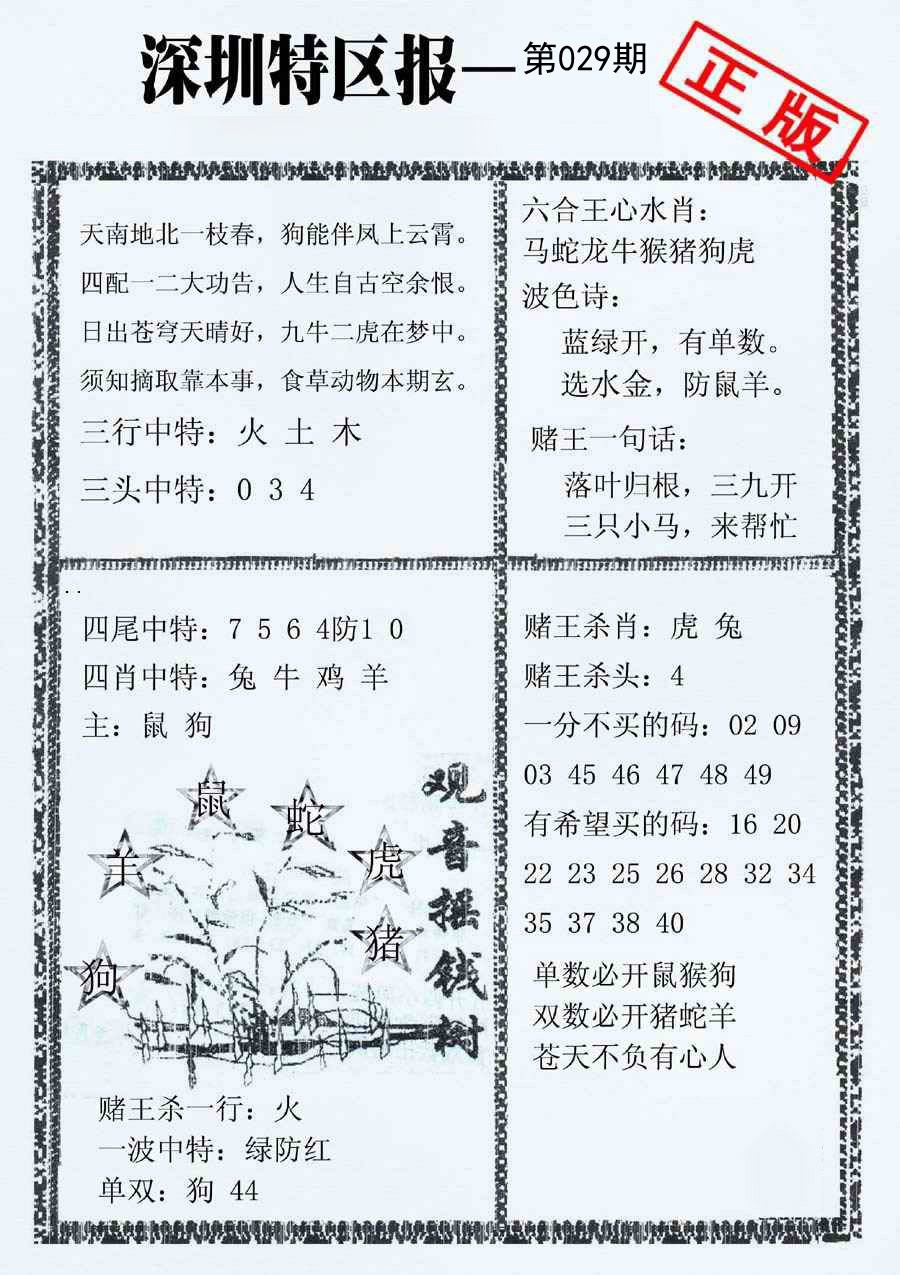 深圳特区报—第029期
正版
天南地北一枝春，狗能伴凤上云霄。
四配一二大功告，人生自古空余恨。
日出苍穹天晴好，九牛二虎在梦中。
须知摘取靠本事，食草动物本期玄。
三行中特：火 土 木
三头中特：0 3 4
六合王心水肖：
马蛇龙牛猴猪狗虎
波色诗：
蓝绿开，有单数。
选水金，防鼠羊。
赌王一句话：
落叶归根，三九开
三只小马，来帮忙
四尾中特：7 5 6 4防1 0
四肖中特：兔 牛 鸡 羊
主：鼠 狗
鼠
蛇
羊
虎
猪
狗
观音摇钱树
赌王杀一行：火
一波中特：绿防红
单双：狗 44
赌王杀肖：虎 兔
赌王杀头：4
一分不买的码：02 09
03 45 46 47 48 49
有希望买的码：16 20
22 23 25 26 28 32 34
35 37 38 40
单数必开鼠猴狗
双数必开猪蛇羊
苍天不负有心人